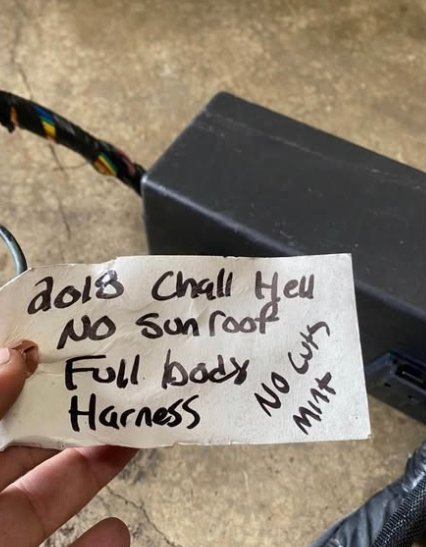 2018 Chall Hell
No Sunroof
Full body
Harness
No Cuts
Mint